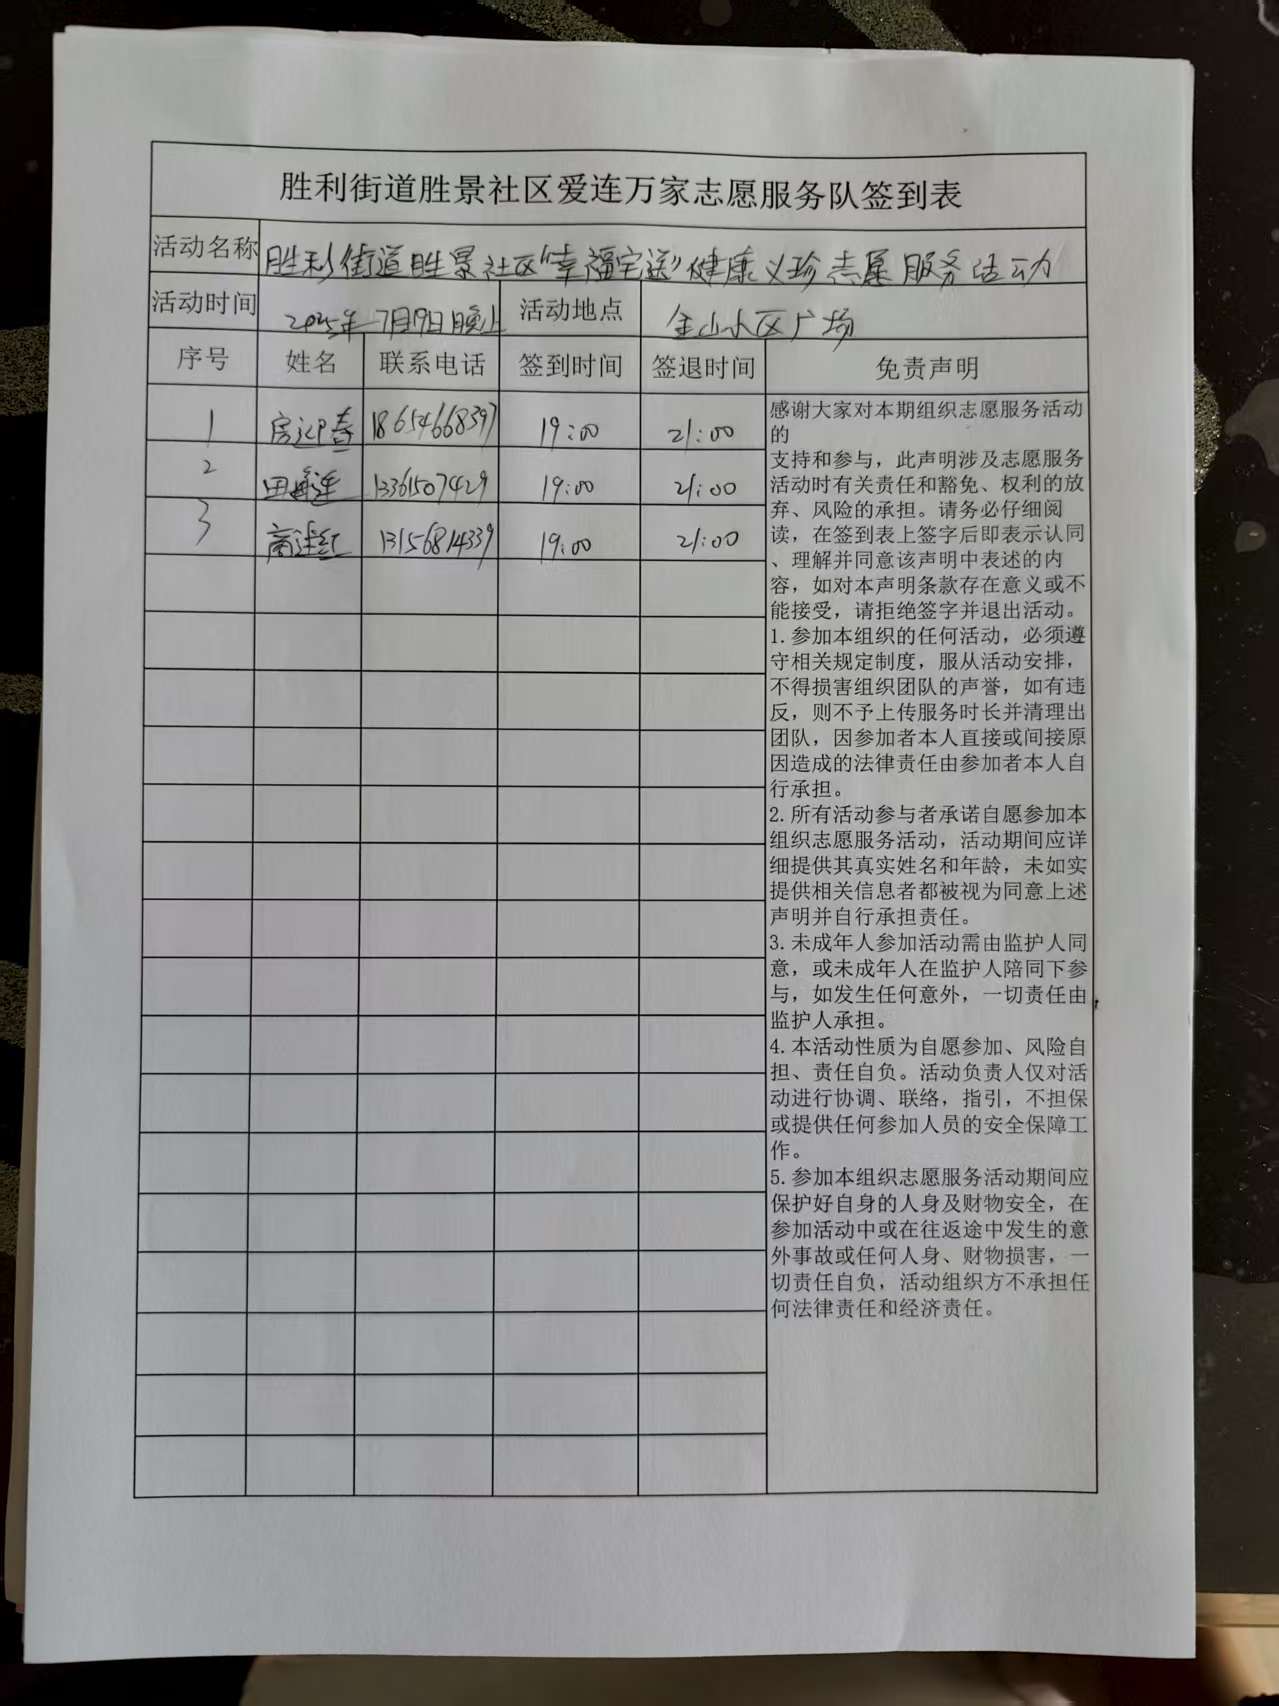 胜利街道胜景社区爱连万家志愿服务队签到表
活动名称 胜利街道胜景社区"幸福宅送"健康义珍志愿服务活动
活动时间 2025年7月19日晚上 活动地点 金山小区广场
序号 姓名 联系电话 签到时间 签退时间 免责声明
1 房 春 18654668397 19:00 21:00
2 田 莲 13361507429 19:00 21:00
3 高 红 13156814339 19:00 21:00
感谢大家对本期组织志愿服务活动
的
支持和参与，此声明涉及志愿服务
活动时有关责任和豁免、权利的放
弃、风险的承担。请务必仔细阅
读，在签到表上签字后即表示认同
、理解并同意该声明中表述的内
容，如对本声明条款存在意义或不
能接受，请拒绝签字并退出活动。
1.参加本组织的任何活动，必须遵
守相关规定制度，服从活动安排，
不得损害组织团队的声誉，如有违
反，则不予上传服务时长并清理出
团队，因参加者本人直接或间接原
因造成的法律责任由参加者本人自
行承担。
2.所有活动参与者承诺自愿参加本
组织志愿服务活动，活动期间应详
细提供其真实姓名和年龄，未如实
提供相关信息者都被视为同意上述
声明并自行承担责任。
3.未成年人参加活动需由监护人同
意，或未成年人在监护人陪同下参
与，如发生任何意外，一切责任由
监护人承担。
4.本活动性质为自愿参加、风险自
担、责任自负。活动负责人仅对活
动进行协调、联络，指引，不担保
或提供任何参加人员的安全保障工
作。
5.参加本组织志愿服务活动期间应
保护好自身的人身及财物安全，在
参加活动中或在往返途中发生的意
外事故或任何人身、财物损害，一
切责任自负，活动组织方不承担任
何法律责任和经济责任。